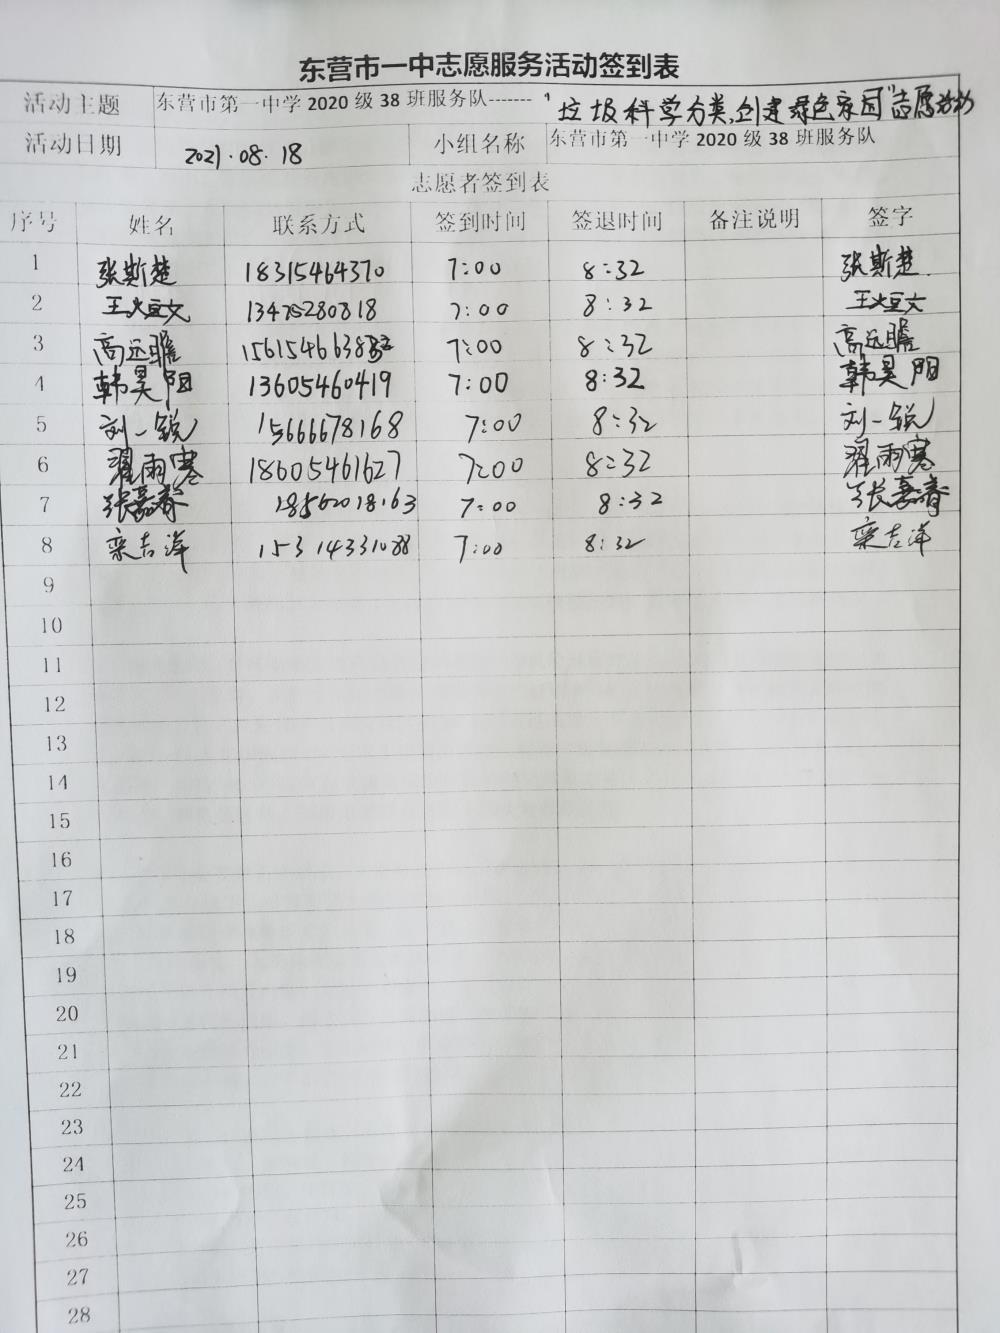 东营市一中志愿服务活动签到表
活动主题 东营市第一中学 2020 级 38 班服务队------- “垃圾科学分类,创建绿色家园”志愿活动
活动日期 2021.08.18 小组名称 东营市第一中学 2020 级 38 班服务队
志愿者签到表
序号 姓名 联系方式 签到时间 签退时间 备注说明 签字
1 张斯楚 18315464370 7:00 8:32 张斯楚
2 王烜文 13475280818 7:00 8:32 王烜文
3 高远瞻 7:00 8:32 高远瞻
4 韩昊阳 13605460419 7:00 8:32 韩昊阳
5 刘一锐 15666678168 7:00 8:32 刘一锐
6 翟雨骞 18605461627 7:00 8:32 翟雨骞
7 张嘉睿 18562018163 7:00 8:32 张嘉睿
8 栾吉洋 15314331088 7:00 8:32 栾吉洋
9
10
11
12
13
14
15
16
17
18
19
20
21
22
23
24
25
26
27
28